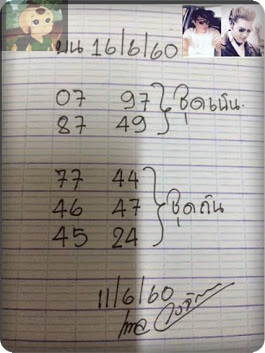 บน 16/6/60
07 97
87 49 ชุดเน้น
77 44
46 47 ชุดกัน
45 24
11/6/60